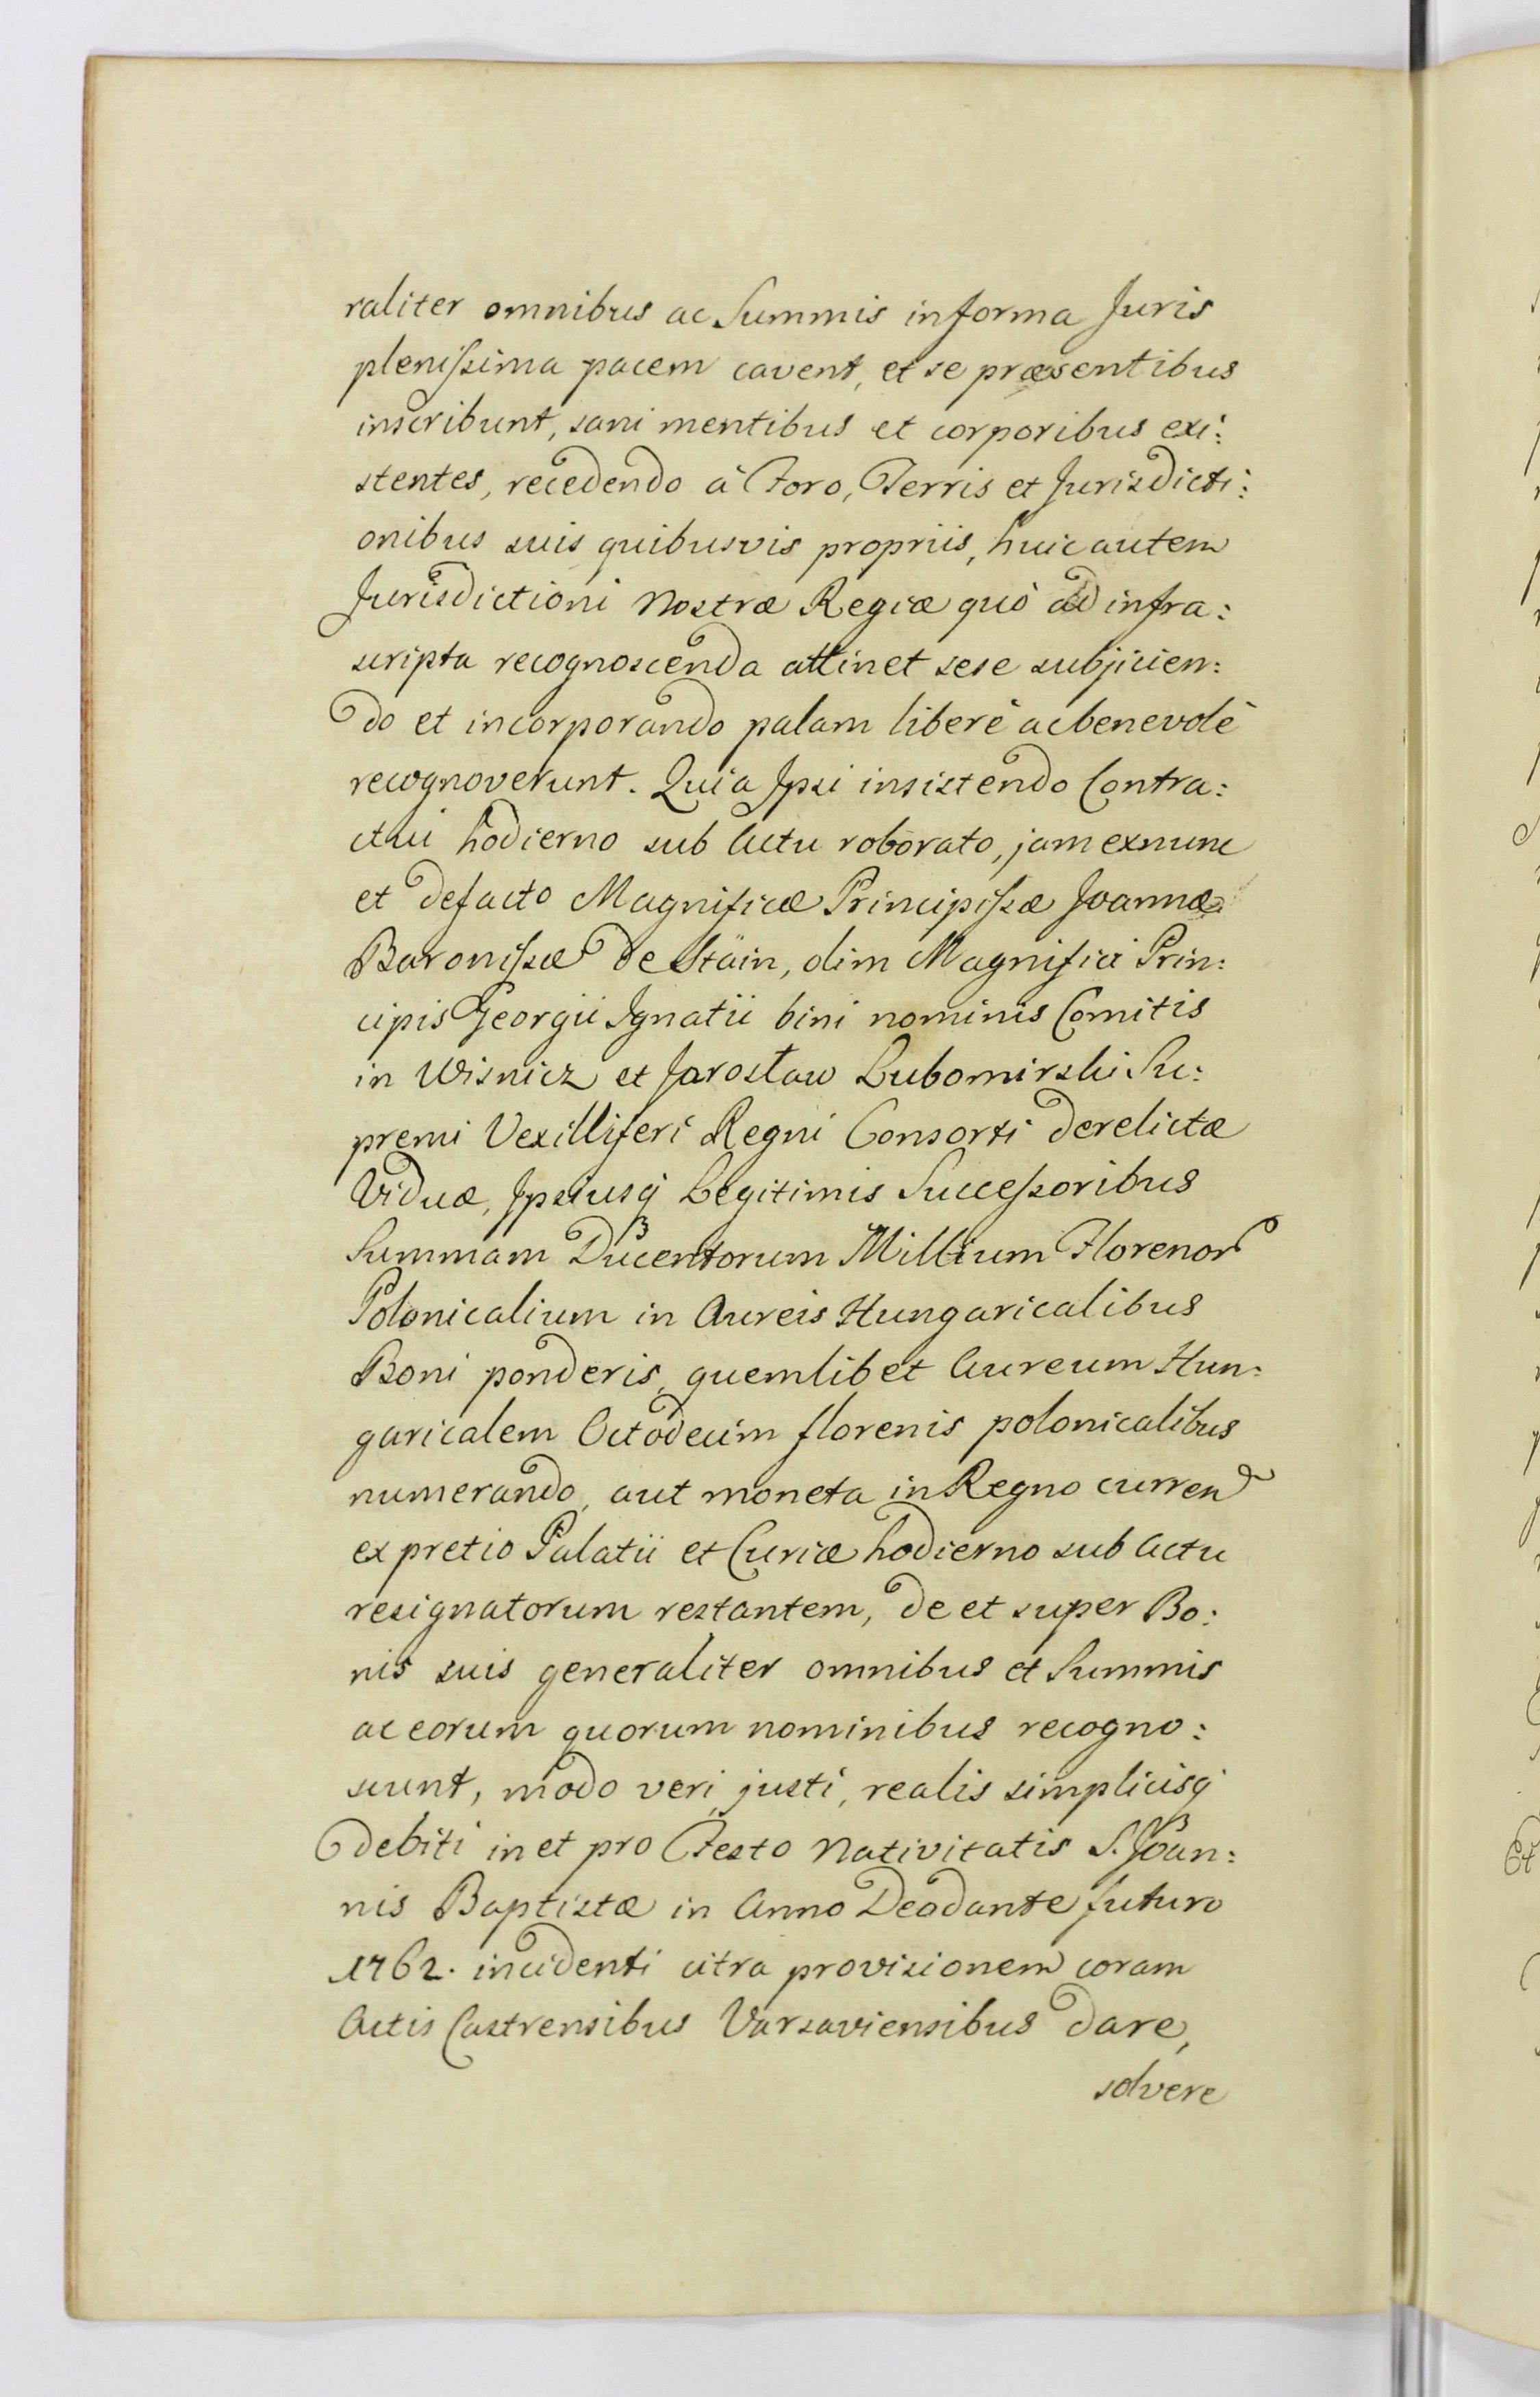 raliter omnibus ac Summis in forma Juris
plenissima pacem cavent, et se præsentibus
inscribunt, sani mentibus et corporibus exi:
stentes, recedendo à Foro, Terris et Jurisdicti:
onibus suis quibusvis propriis, huic autem
Jurisdictioni Nostræ Regiæ quò ad infra:
scripta recognoscenda attinet sese subjicien:
do et incorporando palam liberè ac benevolè
recognoverunt. Quia Ipsi insistendo Contra:
ctui hodierno sub Actu roborato, jam exnunc
et defacto Magnificæ Principissæ Joannæ
Baronissæ de Stäin, olim Magnifici Prin:
cipis Georgii Ignatii bini nominis Comitis
in Wisnicz et Jarosław Lubomirski Su:
premi Vexilliferi Regni Consorti derelictæ
Viduæ, Ipsiusq Legitimis Successoribus
Summam Ducentorum Millium Florenor
Polonicalium in Aureis Hungaricalibus
Boni ponderis, quemlibet Aureum Hun:
garicalem Octodecim florenis polonicalibus
numerando, aut moneta in Regno curren
ex pretio Palatii et Curiæ hodierno sub Actu
resignatorum restantem, de et super Bo:
nis suis generaliter omnibus et Summis
ac eorum quorum nominibus recogno:
scunt, modo veri, justi, realis simplicisq
debiti in et pro Festo Nativitatis S. Joan:
nis Baptistæ in Anno Deodante futuro
1762. incidenti citra provisionem coram
Actis Castrensibus Varsaviensibus dare,
solvere